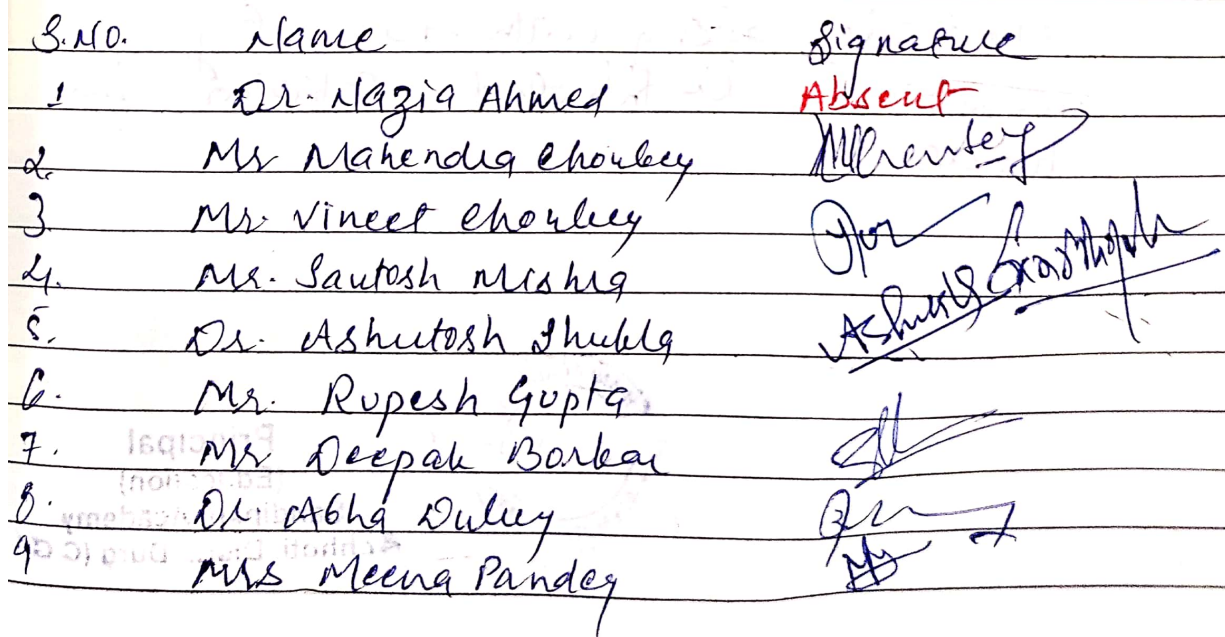 S.No. Name Signature
1 Dr. Nazia Ahmed. Absent
2. Mr Mahendra Choubey
3 Mr. Vineet Choubey
4. Mr. Santosh Mishra
5. Dr. Ashutosh Shukla
6. Mr. Rupesh Gupta
7. Mr Deepak Borkar
8. Dr. Abha Dubey
9 Mrs Meena Pandey